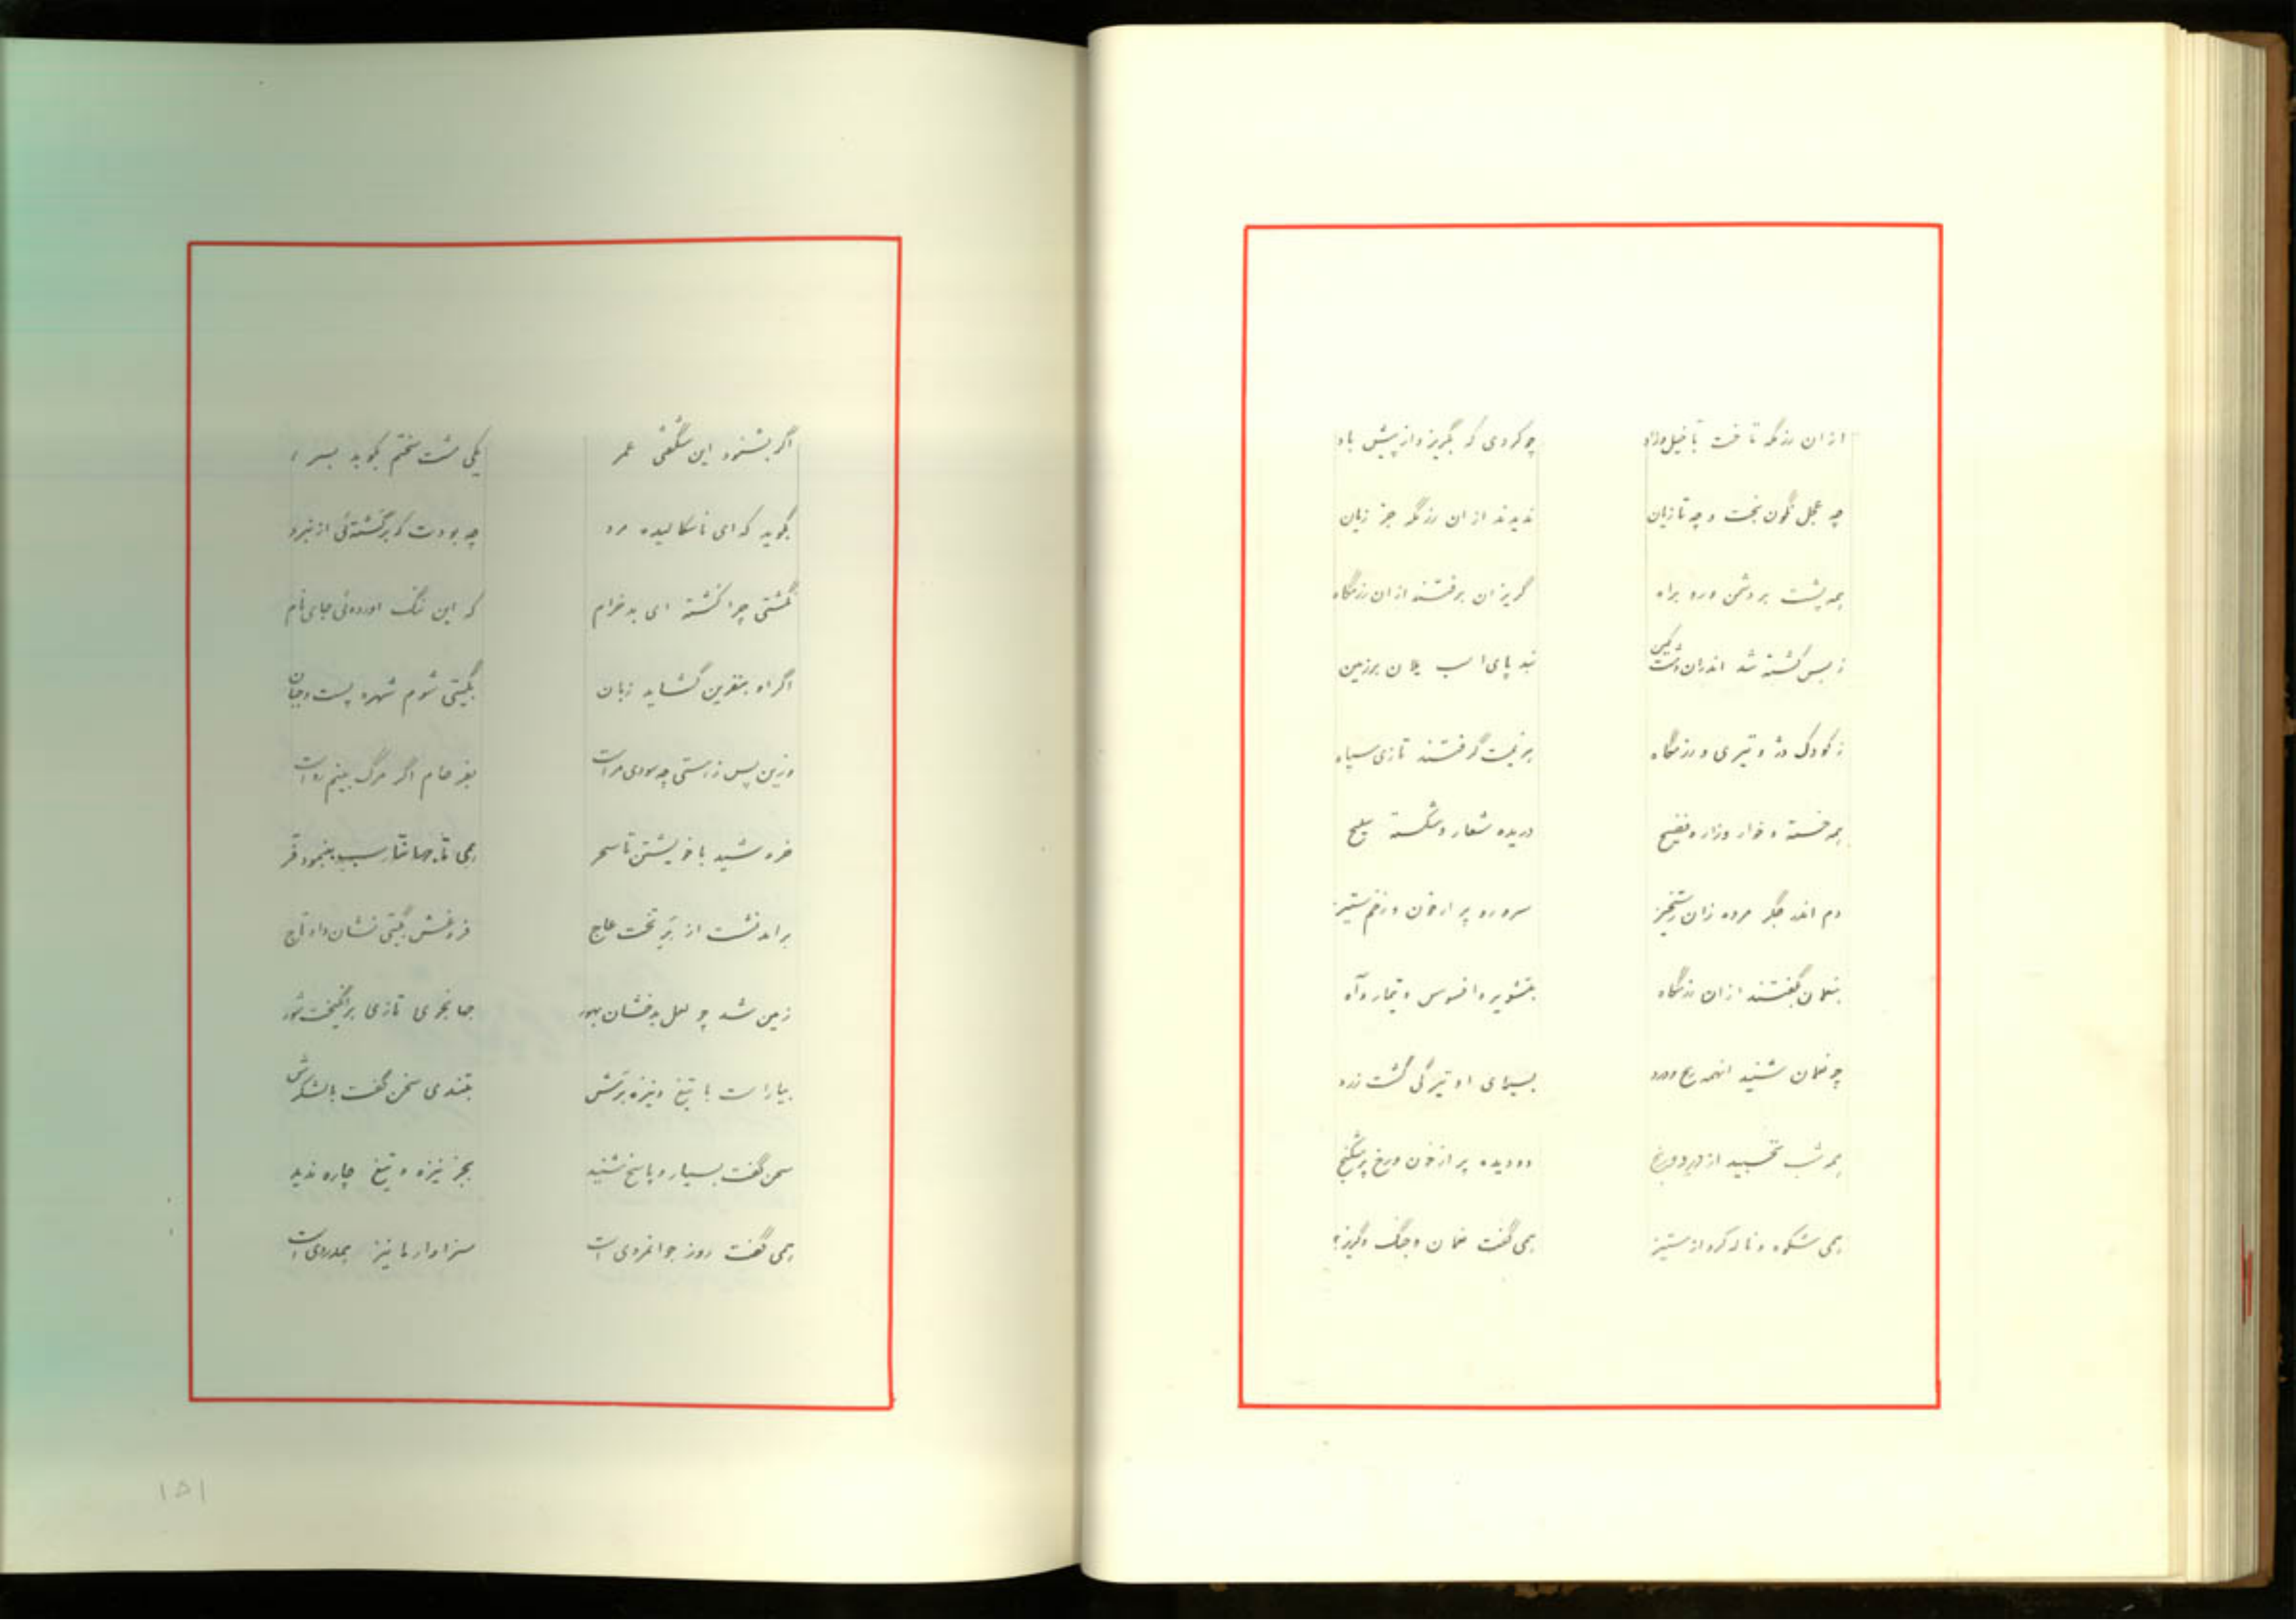 ازان رزمگه تاخت تا خیل وزاد چو کردی که بگریزد از پیش باد
چه عجل نگون بخت و چه تازیان ندیدند ازان رزمگه جز زیان
همه پشت بر دشمن ورو براه گریزان برفتند ازان رزمگاه
ز بس کشته شد اندران دشت کین نبد پای اسب یلان بر زمین
ز کودک دژ و تیری و رزمگاه هزیمت گرفتند تازی سپاه
همه خسته و خوار وزار و فضیح دریده شعار و شکسته سلیح
دم اندر جگر مرده زان رستخیز سر و رو پر از خون و زخم ستیز
بنعمان بگفتند ازان رزمگاه بتشویر و افسوس و تیمار و آه
چو نعمان شنید انهمه رنج و درد بسیمای او تیرگی گشت زرد
همه شب نخسبید از درد و رنج دو دیده پر از خون و رخ پر شکنج
همی شکوه و ناله کرد از ستیز همی گفت نعمان و جنگ و گریز؟
اگر بشنود این شگفتی عمر یکی مشت سختم بکوبد بسر
بگوید که ای ناسکالیده مرد چه بودت که برگشته‌ئی از نبرد
نگشتی چرا کشته ای بد خرام که این ننگ اوردوئی جای نام
اگر او بنفرین گشاید زبان بگیتی شوم شهره پست و جبان
وزین پس ز رستی چه سودی مراست بفرجام اگر مرگ بینم رواست
خروشید با خویشتن تا سحر همی تا جهانتاب بنمود فر
برامد نشست از بر تخت عاج فروغش بگیتی نشان داد تاج
زمین شد چو لعل بدخشان بهور جهانجوی تازی برانگیخت شور
بیاراست با تیغ و نیزه برش بتندی سخن گفت با لشکرش
سخن گفت بسیار و پاسخ شنید بجز نیزه و تیغ چاره ندید
همی گفت روز جوانمردی است سزاوار ما نیز همدردی است
۱۵۱